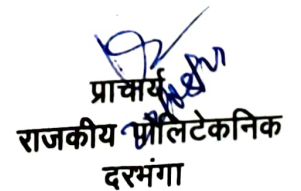 प्राचार्य
राजकीय पॉलिटेकनिक
दरभंगा